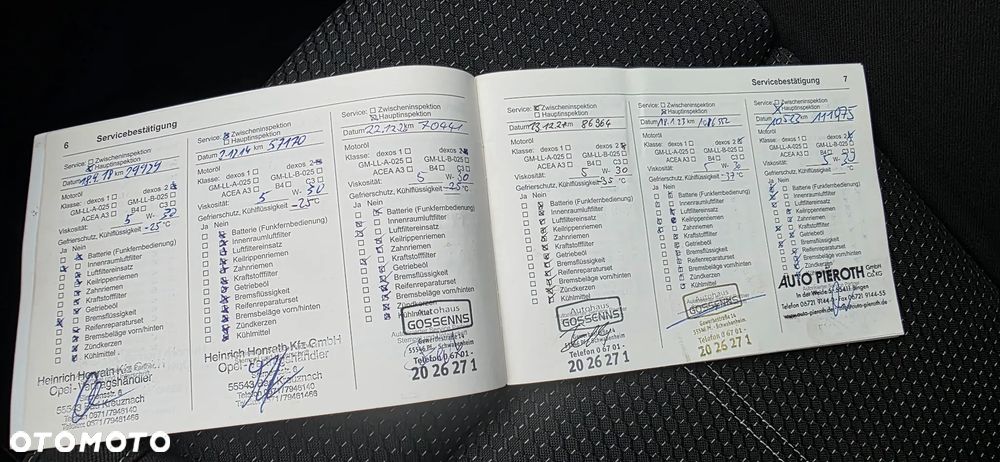 6 Servicebestätigung
Service: Zwischeninspektion
Hauptinspektion
Datum 18.4.18 km 29424
Motoröl
Klasse: dexos 1 dexos 2
GM-LL-A-025 GM-LL-B-025
ACEA A3 B4 C3
Viskosität: 5 W- 30
Gefrierschutz, Kühlflüssigkeit -25 °C
Ja Nein
Batterie (Funkfernbedienung)
Innenraumluftfilter
Luftfiltereinsatz
Keilrippenriemen
Zahnriemen
Kraftstofffilter
Getriebeöl
Bremsflüssigkeit
Reifenreparaturset
Bremsbeläge vorn/hinten
Zündkerzen
Kühlmittel
Heinrich Honrath Kfz
Opel-Vertragshändler
55543 Bad Kreuznach
Telefon 0671/7946140
0671/79461466
Service: Zwischeninspektion
Hauptinspektion
Datum km 57170
Motoröl
Klasse: dexos 1 dexos 2
GM-LL-A-025 GM-LL-B-025
ACEA A3 B4 C3
Viskosität: 5 W- 30
Gefrierschutz, Kühlflüssigkeit -25 °C
Ja Nein
Batterie (Funkfernbedienung)
Innenraumluftfilter
Luftfiltereinsatz
Keilrippenriemen
Zahnriemen
Kraftstofffilter
Getriebeöl
Bremsflüssigkeit
Reifenreparaturset
Bremsbeläge vorn/hinten
Zündkerzen
Kühlmittel
Heinrich Honrath Kfz GmbH
Opel-Vertragshändler
55543 Bad Kreuznach
Telefon 0671/7946140
0671/79461466
Service: Zwischeninspektion
Hauptinspektion
Datum km 70441
Motoröl
Klasse: dexos 1 dexos 2
GM-LL-A-025 GM-LL-B-025
ACEA A3 B4 C3
Viskosität: 5 W- 30
Gefrierschutz, Kühlflüssigkeit -25 °C
Ja Nein
Batterie (Funkfernbedienung)
Innenraumluftfilter
Luftfiltereinsatz
Keilrippenriemen
Zahnriemen
Kraftstofffilter
Getriebeöl
Bremsflüssigkeit
Reifenreparaturset
Bremsbeläge vorn/hinten
Zündkerzen
Kühlmittel
Autohaus
GOSSENNS
Gewerbestraße 14
55546 Pf.-Schwabenheim
Telefon 0 67 01 -
20 26 27 1
Servicebestätigung 7
Service: Zwischeninspektion
Hauptinspektion
Datum km 86364
Motoröl
Klasse: dexos 1 dexos 2
GM-LL-A-025 GM-LL-B-025
ACEA A3 B4 C3
Viskosität: 5 W- 30
Gefrierschutz, Kühlflüssigkeit -35 °C
Ja Nein
Batterie (Funkfernbedienung)
Innenraumluftfilter
Luftfiltereinsatz
Keilrippenriemen
Zahnriemen
Kraftstofffilter
Getriebeöl
Bremsflüssigkeit
Reifenreparaturset
Bremsbeläge vorn/hinten
Zündkerzen
Kühlmittel
Autohaus
GOSSENNS
Gewerbestraße 14
55546 Pf.-Schwabenheim
Telefon 0 67 01 -
20 26 27 1
Service: Zwischeninspektion
Hauptinspektion
Datum 18.1.23 km
Motoröl
Klasse: dexos 1 dexos 2
GM-LL-A-025 GM-LL-B-025
ACEA A3 B4 C3
Viskosität: 5 W- 30
Gefrierschutz, Kühlflüssigkeit -37 °C
Ja Nein
Batterie (Funkfernbedienung)
Innenraumluftfilter
Luftfiltereinsatz
Keilrippenriemen
Zahnriemen
Kraftstofffilter
Getriebeöl
Bremsflüssigkeit
Reifenreparaturset
Bremsbeläge vorn/hinten
Zündkerzen
Kühlmittel
Autohaus
GOSSENNS
Gewerbestraße 14
55546 Pf.-Schwabenheim
Telefon 0 67 01 -
20 26 27 1
Service: Zwischeninspektion
Hauptinspektion
Datum km 111975
Motoröl
Klasse: dexos 1 dexos 2
GM-LL-A-025 GM-LL-B-025
ACEA A3 B4 C3
Viskosität: 5 W- 30
Gefrierschutz, Kühlflüssigkeit °C
Ja Nein
Batterie (Funkfernbedienung)
Innenraumluftfilter
Luftfiltereinsatz
Keilrippenriemen
Zahnriemen
Kraftstofffilter
Getriebeöl
Bremsflüssigkeit
Reifenreparaturset
Bremsbeläge vorn/hinten
AUTO PIEROTH GmbH
Co.KG
In der Weide 55411 Bingen
Telefon 06721 9144-0 Fax 06721 9144-55
www.auto-pieroth.de
OTOMOTO